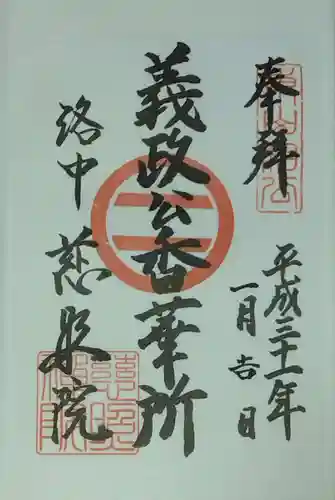 奉拝
平成三十一年
一月吉日
義政公香華所
洛中 慈照院